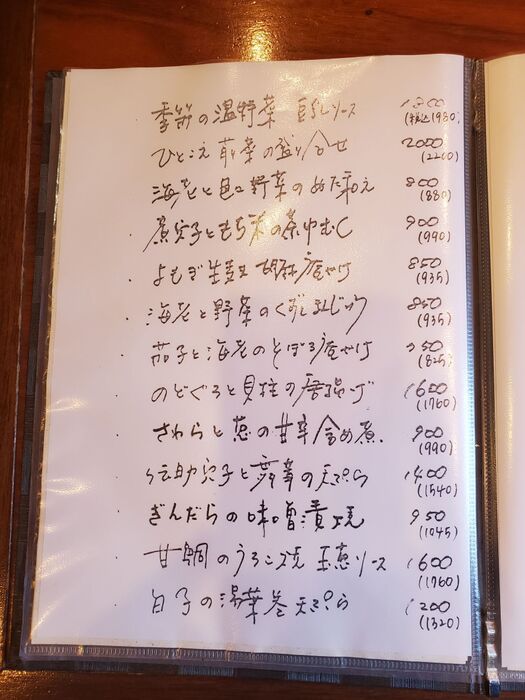 季節の温野菜 ソース 1800
(税込1980)
ひとこえ 前菜の盛り合せ 2000
(2200)
海老と 野菜の 和え 800
(880)
煮穴子ともち米の茶巾むし 900
(990)
よもぎ生麩 胡麻 850
(935)
海老と野菜の 850
(935)
茄子と海老のそぼろ 750
(825)
のどぐろと貝柱の唐揚げ 1600
(1760)
さわらと葱の甘辛含め煮 900
(990)
伝助穴子と舞茸の天ぷら 1400
(1540)
ぎんだらの味噌漬焼 950
(1045)
甘鯛のうろこ焼 ソース 1600
(1760)
白子の湯葉巻天ぷら 1200
(1320)